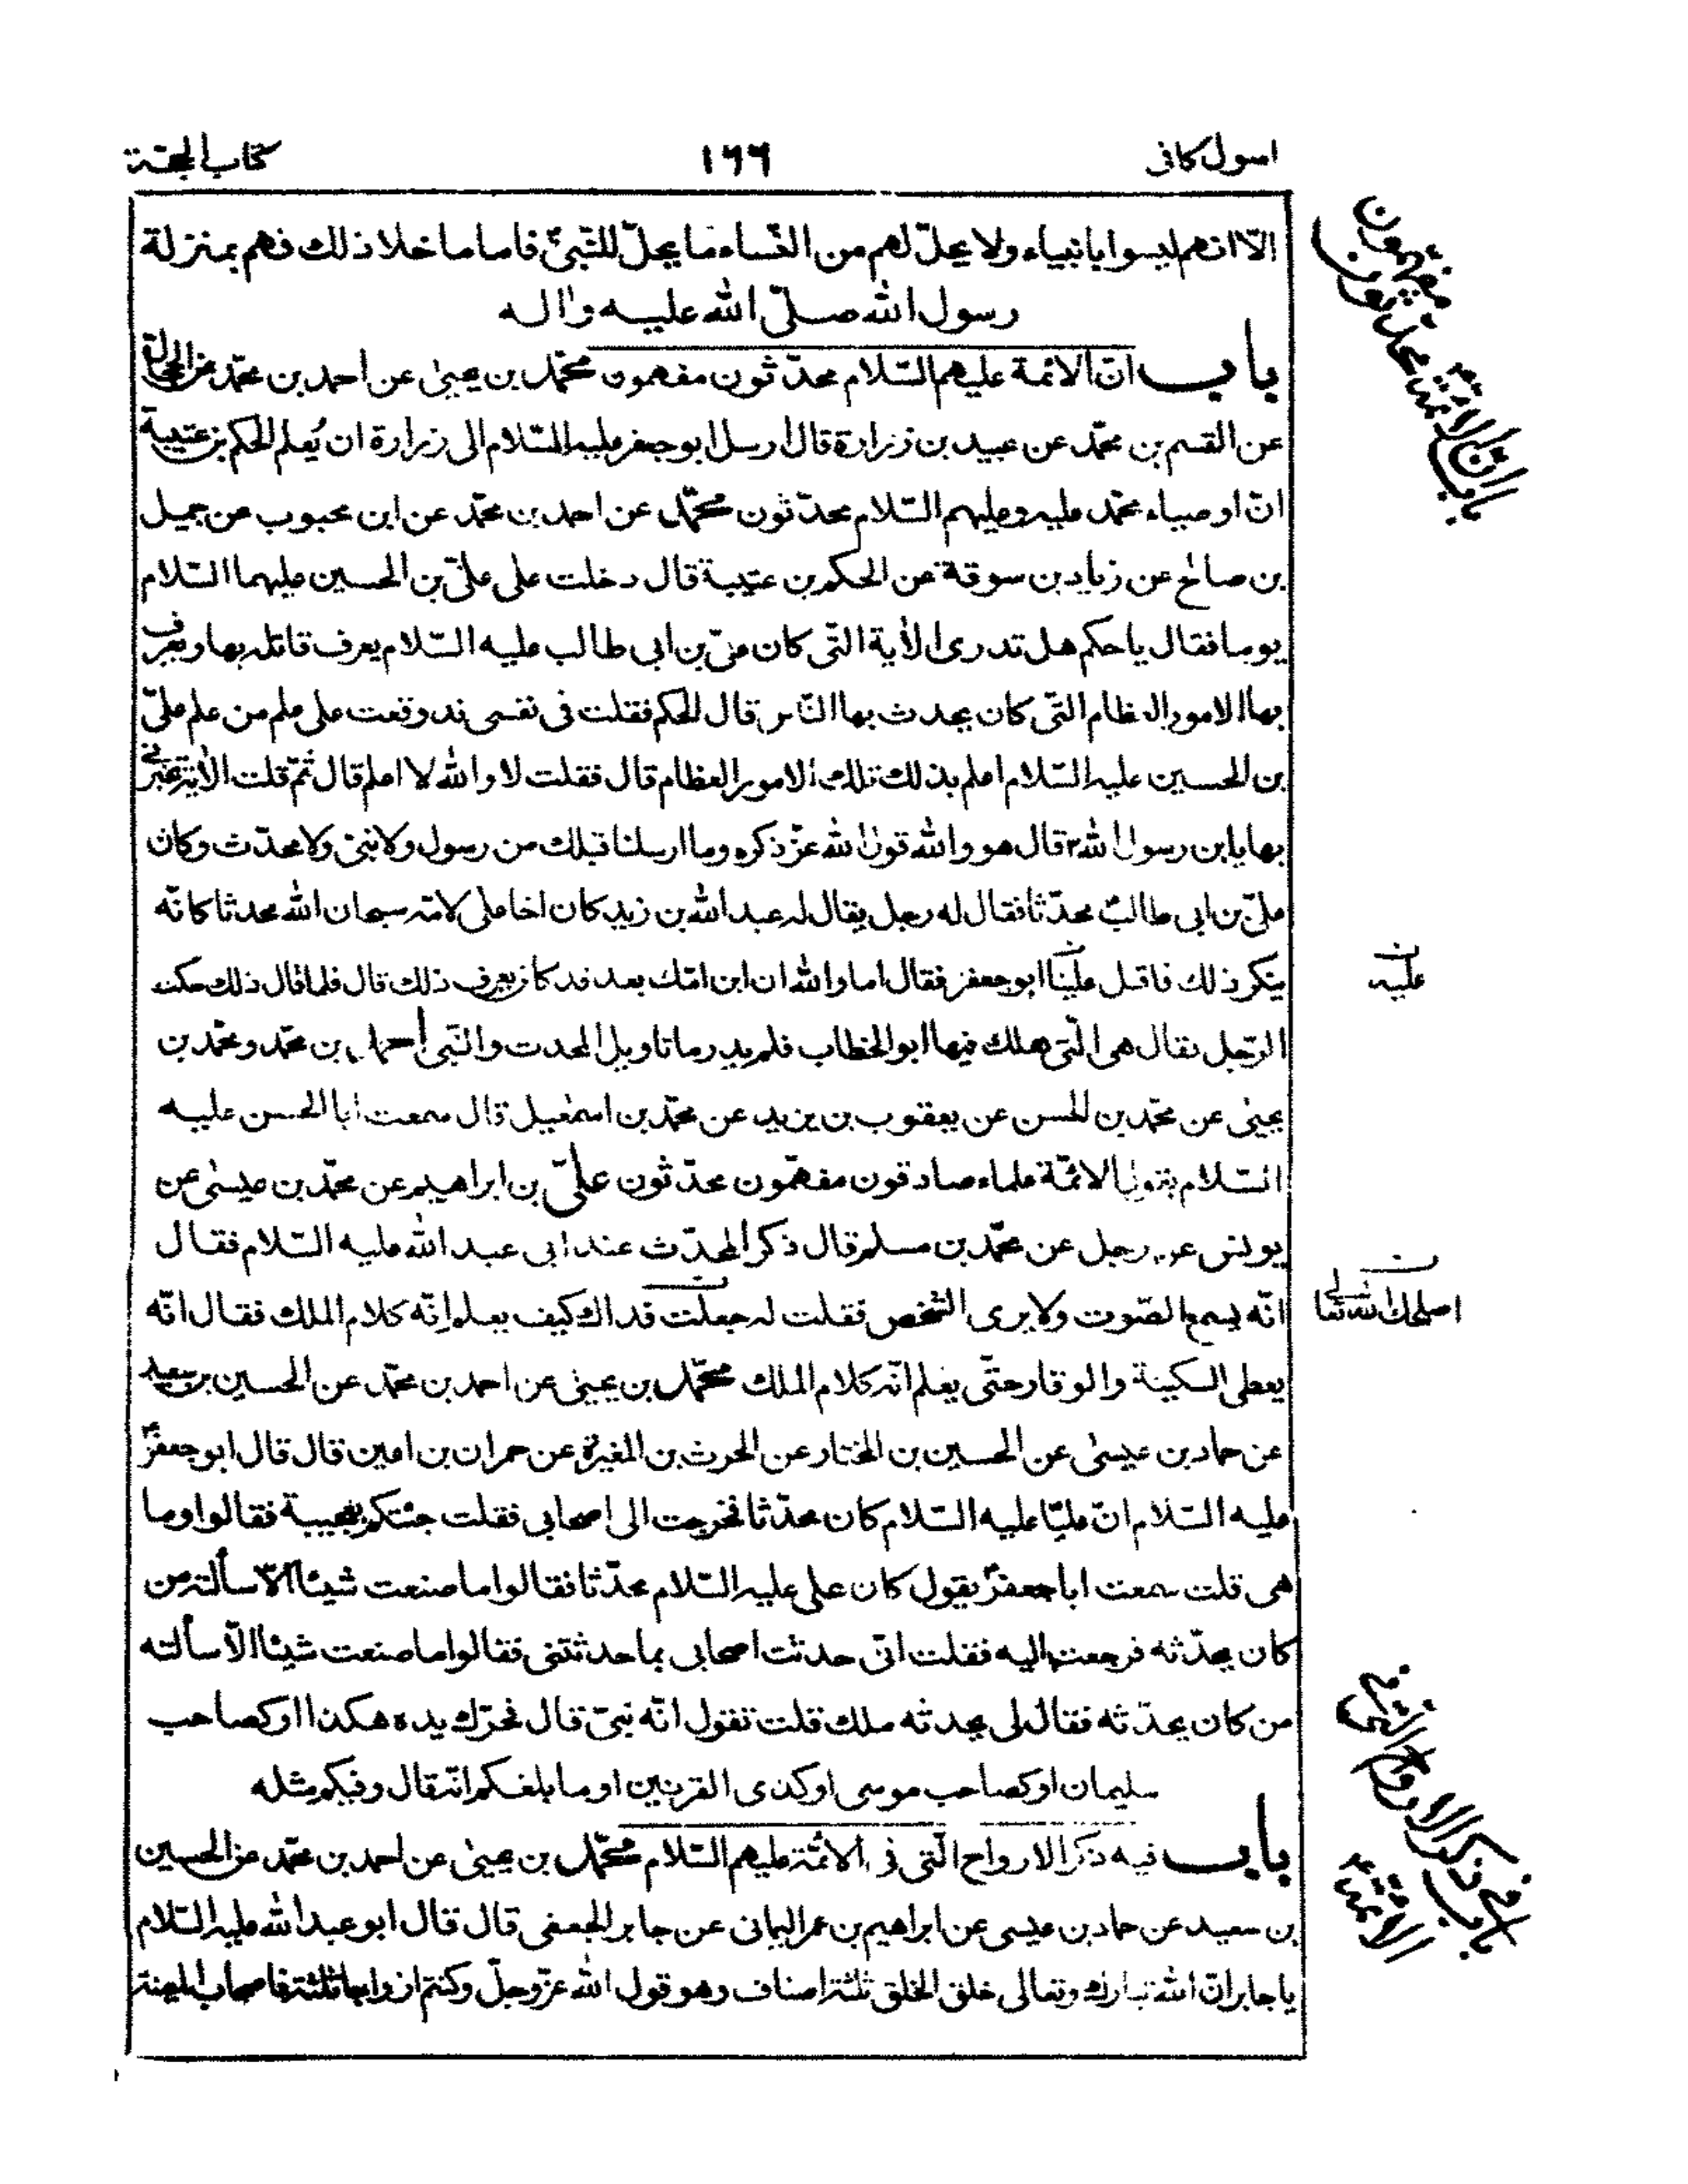 اصول کافی
۱۶۶
کتاب الحجة
الّا انهم ليسوا بانبياء ولا يحلّ لهم من النّساء ما يحلّ للنّبىّ فاما ما خلا ذلك فهم بمنزلة
رسول الله صلّى الله عليه واله
باب انّ الائمة عليهم السّلام محدّثون مفهمون محمّد بن يحيىٰ عن احمد بن محمّد عن الحجال
عن القسم بن محمّد عن عبيد بن زرارة قال ارسل ابو جعفر عليه السّلام الى زرارة ان يُعلم الحكم بن عتيبة
انّ اوصياء محمّد عليه وعليهم السّلام محدّثون محمّد عن احمد بن محمّد عن ابن محبوب عن جميل
بن صالح عن زياد بن سوقة عن الحكم بن عتيبة قال دخلت على علىّ بن الحسين عليهما السّلام
يوما فقال يا حكم هل تدرى الأية الّتى كان علىّ بن ابى طالب عليه السّلام يعرف قاتله بها ويعرف
بها الامور العظام التّى كان يحدث بها النّاس قال الحكم فقلت فى نفسى قد وقعت على علم من علم علىّ
بن الحسين عليه السّلام اعلم بذلك تلك الامور العظام قال فقلت لا والله لا اعلم قال ثمّ قلت الأية تخبرنى
بها يا ابن رسول الله قال هو والله قول الله عزّ ذكره وما ارسلنا قبلك من رسول ولا نبىّ ولا محدّث وكان
علىّ بن ابى طالب محدّثا فقال له رجل يقال له عبد الله بن زيد كان اخا على لامّه سبحان الله محدثا كانّه
ينكر ذلك فاقبل علينا ابو جعفر فقال اما والله ان ابن امّك بعد قد كان يعرف ذلك قال فلما قال ذلك سكت
الرّجل فقال هى الّتى هلك فيها ابو الخطاب فلم يدر ما تاويل المحدث والنّبى احمد بن محمّد ومحمّد بن
يحيىٰ عن محمّد بن الحسن عن يعقوب بن يزيد عن محمّد بن اسمٰعيل قال سمعت ابا الحسن عليه
السّلام يقول الائمّة علماء صادقون مفهّمون محدّثون علىّ بن ابراهيم عن محمّد بن عيسىٰ عن
يونس عن رجل عن محمّد بن مسلم قال ذكر المحدّث عند ابى عبد الله عليه السّلام فقال
انّه يسمع الصّوت ولا يرى الشخص فقلت له جعلت فداك كيف يعلم انّه كلام الملك فقال انّه
يعطى السكينة والوقار حتّى يعلم انّه كلام الملك محمّد بن يحيىٰ عن احمد بن محمّد عن الحسين بن سعيد
عن حماد بن عيسىٰ عن الحسين بن المختار عن الحرث بن المغيرة عن حمران بن اعين قال قال ابو جعفر
عليه السّلام انّ عليّا عليه السّلام كان محدّثا فخرجت الى اصحابى فقلت جئتكم بعجيبة فقالوا وما
هى قلت سمعت ابا جعفر يقول كان على عليه السّلام محدّثا فقالوا ما صنعت شيئا الّا سألته من
كان يحدّثه فرجعت اليه فقلت انّى حدثت اصحابى بما حدثتنى فقالوا ما صنعت شيئا الّا سألته
من كان يحدّثه فقال لى يحدثه ملك قلت تقول انّه نبىّ قال فحرّك يده هكذا او كصاحب
سليمان او كصاحب موسى او كذى القرنين او ما بلغكم انّه قال وفيكم مثله
باب فيه ذكر الارواح الّتى فى الائمّة عليهم السّلام محمّد بن يحيىٰ عن احمد بن محمّد عن الحسين
بن سعيد عن حماد بن عيسى عن ابراهيم بن عمر اليمانى عن جابر الجعفى قال قال ابو عبد الله عليه السّلام
يا جابر انّ الله تبارك وتعالى خلق الخلق ثلثة اصناف وهو قول الله عزّ وجلّ وكنتم ازواجا ثلثة فاصحاب الميمنة
باب ان الائمة محدثون مفهمون
ن
عليه
ن
اصلحك الله تعالى
باب فى ذكر الارواح التى فى الائمة